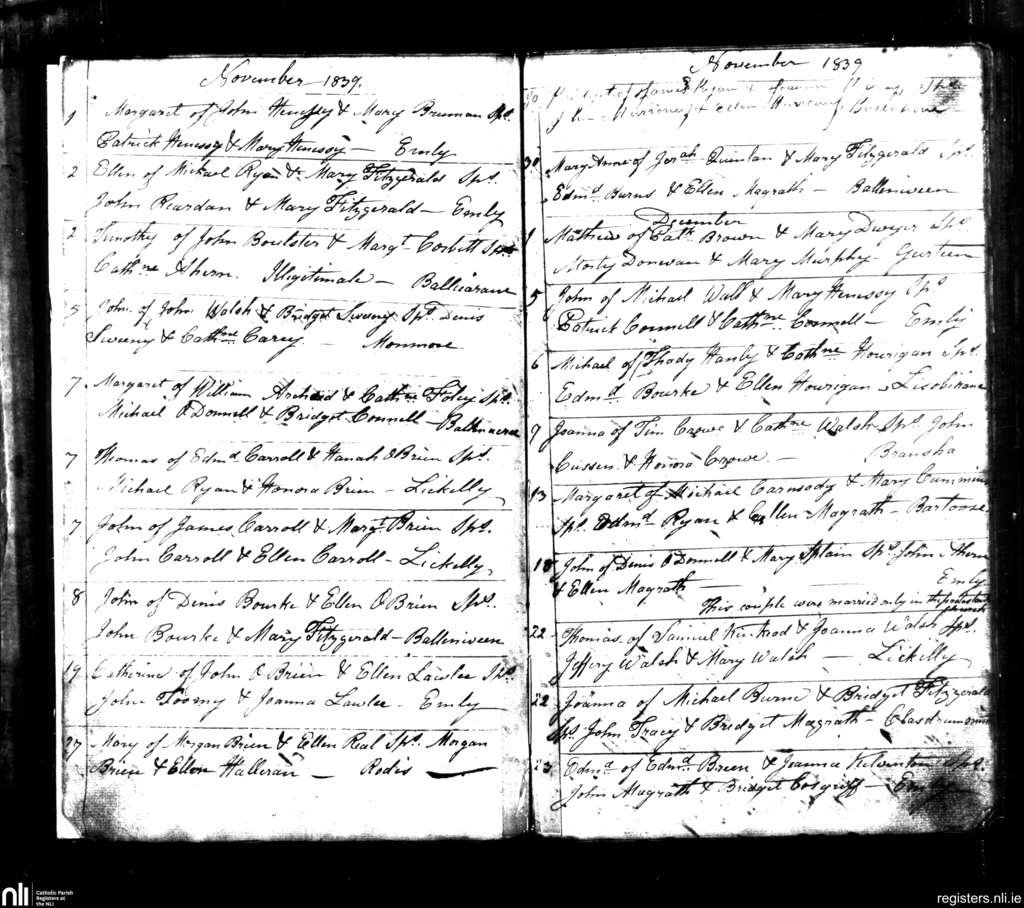 November 1839.
1 Margaret of John Henessy & Mary Brennan Sps.
Patrick Henessy & Mary Henessy — Emly
2 Ellen of Michael Ryan & Mary Fitzgerald Sps.
John Reardan & Mary Fitzgerald — Emly
2 Timothy of John Boulster & Margt. Corbett Sps.
Cathne Ahern. Illegitimate — Ballicarane
5 John of John Walsh & Bridget Sweny Sps. Denis
Sweeny & Cathne Carey — Monmore
7. Margaret of William & Cathne Foley Sps.
Michael O Donnell & Bridget Connell — Ballinacree
7 Thomas of Edmd. Carroll & Hanah O Brien Sps.
Michael Ryan & Honora Brien — Lickelly
7 John of James Carroll & Margt. Brien Sps.
John Carroll & Ellen Carroll — Lickelly
8 John of Denis Bourke & Ellen O Brien Sps.
John Bourke & Mary Fitzgerald — Balleniveen
19 Catherine of John O Brien & Ellen Lawlee Sps.
John Toomy & Joanna Lawlee — Emly
27 Mary of Morgan Brien & Ellen Real Sps. Morgan
Brien & Ellen Halleran — Rodis —
November 1839
of James Ryan &
& Ellen
30 Mary Anne of Jerah Quinlan & Mary Fitzgerald Sps.
Edmd Burns & Ellen Magrath — Balleniveen
December
1 Mathew of Patk. Brown & Mary Dwyer Sps.
Morty Donovan & Mary Murphy — Gurteen
5 John of Michael Wall & Mary Henessy Sps.
Patrick Connell & Cathne Connell — Emly
6 Michael of Thady Hanly & Cathne Hourigan Sps.
Edmd Bourke & Ellen Hourigan — Lisobihane
9 Joanna of Tim Crowe & Cathne Walsh Sps. John
Cussen & Honora Crowe. — Bransha
13 Margaret of Michael Carmody & Mary Cummins
Sps. Edmd Ryan & Ellen Magrath — Bartoose
18 John of Denis O Donnell & Mary Splain Sps. John Ahern
& Ellen Magrath — Emly
This couple was married only in the protestant church
22 Thomas of Samuel & Joanna Walsh Sps.
Jeffery Walsh & Mary Walsh — Lickelly
22 Joanna of Michael Burne & Bridget Fitzgerald
Sps. John Tracy & Bredget Magrath — Glasdrummin
23 Edmd. of Edmd. Breen & Joanna Sps.
John Magrath & Bridget Cosgriff — Emly
nli Catholic Parish
Registers at
the NLI
registers.nli.ie